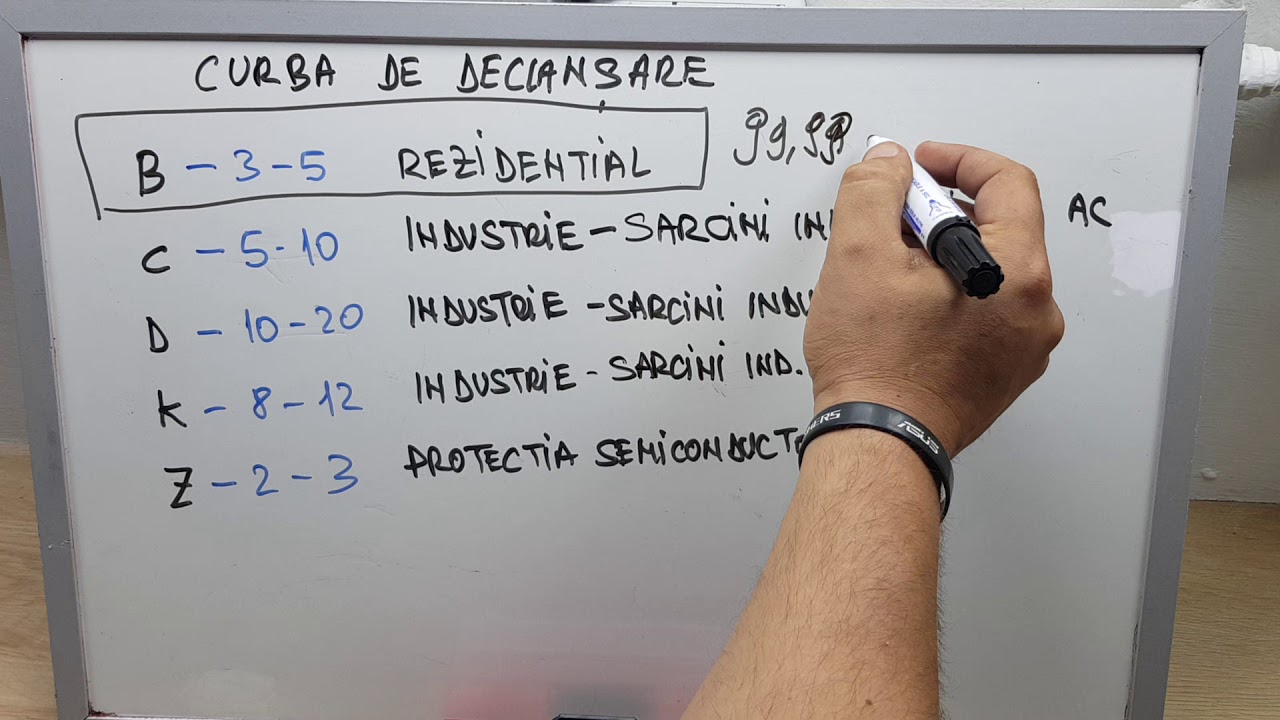 CURBA DE DECLANȘARE
B - 3-5 REZIDENTIAL 99,99
C - 5-10 INDUSTRIE - SARCINI AC
D - 10-20 INDUSTRIE - SARCINI
K - 8-12 INDUSTRIE - SARCINI IND.
Z - 2-3 PROTECTIA
ASUS